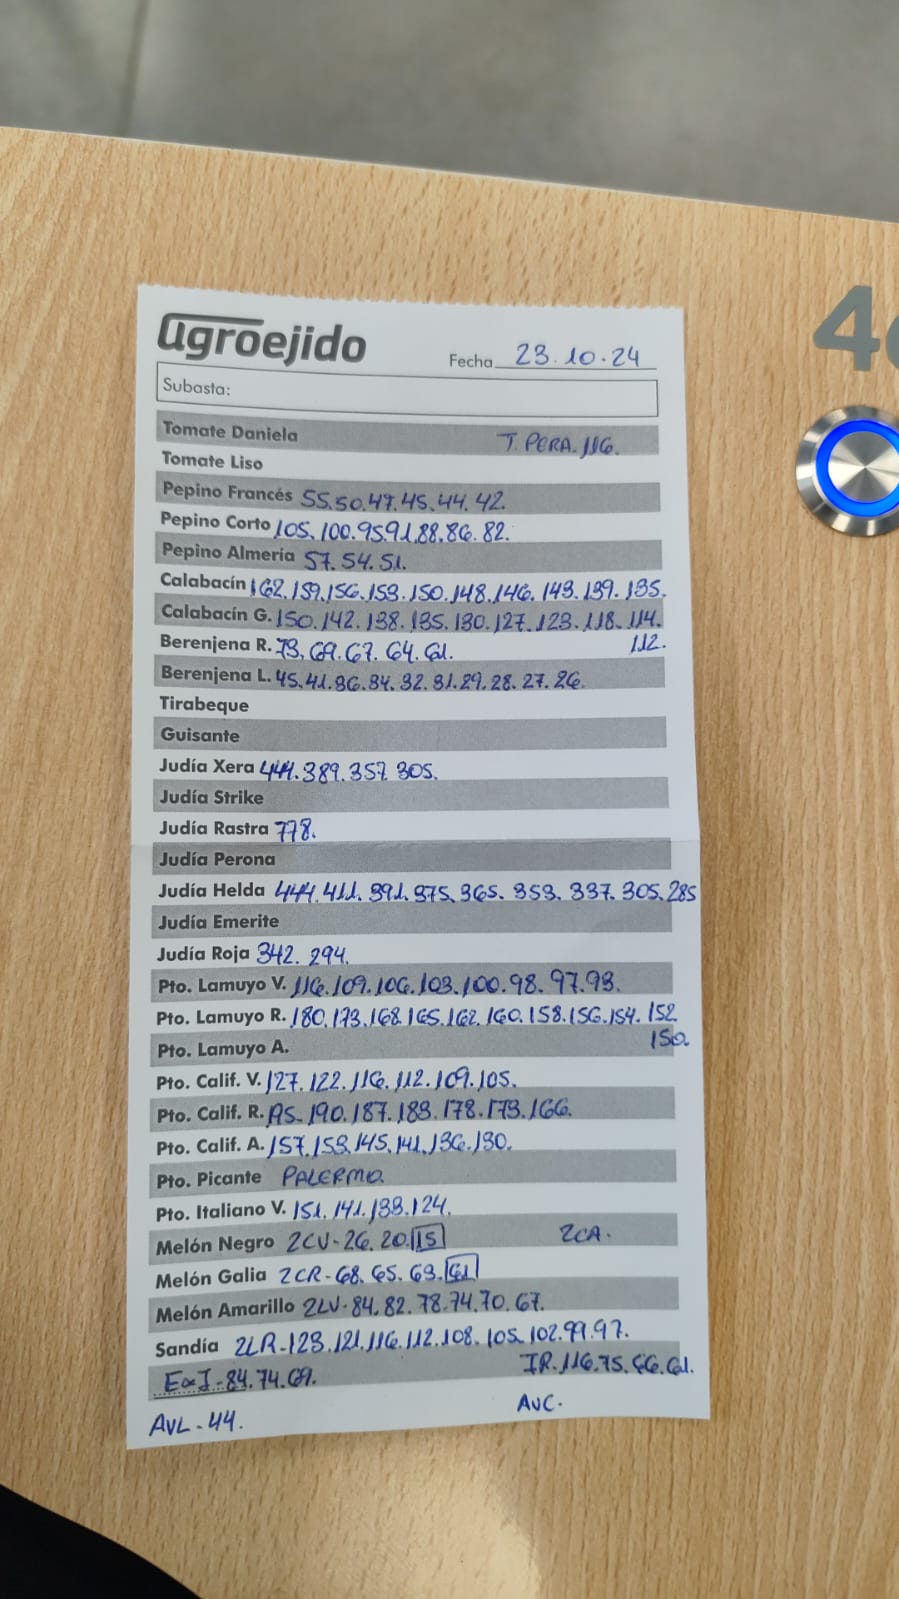 agroejido
Fecha 23.10.24
Subasta:
Tomate Daniela T. PERA. 116.
Tomate Liso
Pepino Francés 55.50.47.45.44.42.
Pepino Corto 105.100.95.91.88.86.82.
Pepino Almería 57.54.51.
Calabacín 162.159.156.153.150.148.146.143.139.135.
Calabacín G. 150.142.138.135.130.127.123.118.114.
112.
Berenjena R. 73.69.67.64.61.
Berenjena L. 45.41.36.34.32.31.29.28.27.26.
Tirabeque
Guisante
Judía Xera 444.389.357.305.
Judía Strike
Judía Rastra 778.
Judía Perona
Judía Helda 444.411.391.375.365.353.337.305.285
Judía Emerite
Judía Roja 342.294.
Pto. Lamuyo V. 116.109.106.103.100.98.97.93.
Pto. Lamuyo R. 180.173.168.165.162.160.158.156.154.152
150.
Pto. Lamuyo A.
Pto. Calif. V. 127.122.116.112.109.105.
Pto. Calif. R. AS-190.187.183.178.173.166.
Pto. Calif. A. 157.153.145.141.136.130.
Pto. Picante PALERMO.
Pto. Italiano V. 151.141.133.124.
Melón Negro 2CV-26.20.15 2CA.
Melón Galia 2CR-68.65.63.61
Melón Amarillo 2LV-84.82.78.74.70.67.
Sandía 2LR-123.121.116.112.108.105.102.99.97.
-84.74.69. IR.116.75.66.61.
AVL-44. AVC.